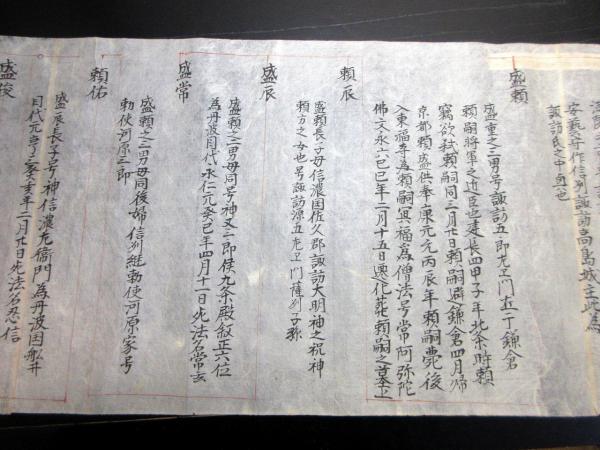 安藝守作信刕諏訪高島城主此為
諏訪氏之中興也
盛頼
盛重之二男号諏訪五郎左卫门五丁鎌倉
頼嗣将軍之近臣也建長四甲子年北条時頼
竊欲弑頼嗣同三月廿日頼嗣避鎌倉四月帰
京都頼盛供奉康元元丙辰年頼嗣薨後
入東福寺為頼嗣冥福為僧法号常阿弥陀
佛文永六己巳年二月十五日遷化葬頼嗣之
頼辰
盛頼長子母信濃国佐久郡諏訪大明神之祝神
頼方之女也号諏訪源五左卫门
盛辰
盛頼之二男母同号神又二郎侯九条殿叙正六位
為丹波目代永仁元癸巳年四月十一日死法名常玄
盛常
盛頼之三男母同後婦信刕継勅使河原家号
勅使河原三郎
頼佑
盛辰長子号神信濃左衛門為丹波国船井
目代元亨三癸亥年二月廿日死法名忍信
盛俊